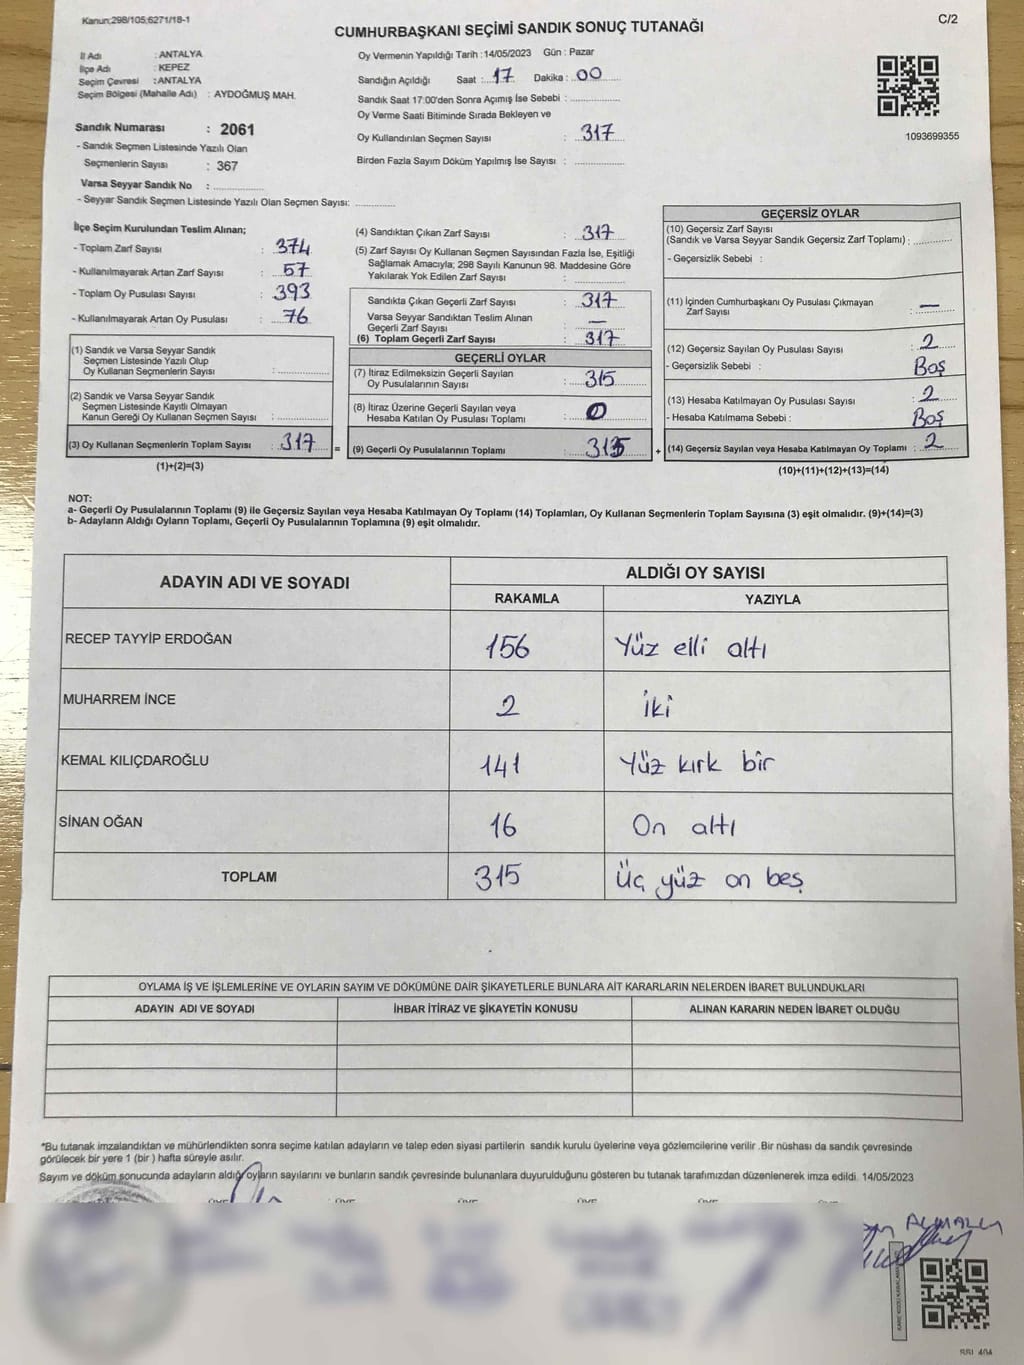 Kanun;298/105;6271/18-1
C/2
CUMHURBAŞKANI SEÇİMİ SANDIK SONUÇ TUTANAĞI
İl Adı : ANTALYA
İlçe Adı : KEPEZ
Seçim Çevresi : ANTALYA
Seçim Bölgesi (Mahalle Adı) : AYDOĞMUŞ MAH.
Sandık Numarası : 2061
- Sandık Seçmen Listesinde Yazılı Olan
Seçmenlerin Sayısı : 367
Varsa Seyyar Sandık No : ..............
- Seyyar Sandık Seçmen Listesinde Yazılı Olan Seçmen Sayısı: ............
Oy Vermenin Yapıldığı Tarih : 14/05/2023 Gün : Pazar
Sandığın Açıldığı Saat : 17 Dakika : 00
Sandık Saat 17:00'den Sonra Açımış İse Sebebi : ..............
Oy Verme Saati Bitiminde Sırada Bekleyen ve
Oy Kullandırılan Seçmen Sayısı : 317
Birden Fazla Sayım Döküm Yapılmış İse Sayısı : ..............
1093699355
İlçe Seçim Kurulundan Teslim Alınan;
- Toplam Zarf Sayısı : 374
- Kullanılmayarak Artan Zarf Sayısı : 57
- Toplam Oy Pusulası Sayısı : 393
- Kullanılmayarak Artan Oy Pusulası : 76
(1) Sandık ve Varsa Seyyar Sandık
Seçmen Listesinde Yazılı Olup
Oy Kullanan Seçmenlerin Sayısı : ..............
(2) Sandık ve Varsa Seyyar Sandık
Seçmen Listesinde Kayıtlı Olmayan
Kanun Gereği Oy Kullanan Seçmen Sayısı : ..............
(3) Oy Kullanan Seçmenlerin Toplam Sayısı : 317 =
(1)+(2)=(3)
(4) Sandıktan Çıkan Zarf Sayısı : 317
(5) Zarf Sayısı Oy Kullanan Seçmen Sayısından Fazla İse, Eşitliği
Sağlamak Amacıyla; 298 Sayılı Kanunun 98. Maddesine Göre
Yakılarak Yok Edilen Zarf Sayısı : ..............
Sandıkta Çıkan Geçerli Zarf Sayısı : 317
Varsa Seyyar Sandıktan Teslim Alınan
Geçerli Zarf Sayısı : —
(6) Toplam Geçerli Zarf Sayısı : 317
GEÇERLİ OYLAR
(7) İtiraz Edilmeksizin Geçerli Sayılan
Oy Pusulalarının Sayısı : 315
(8) İtiraz Üzerine Geçerli Sayılan veya
Hesaba Katılan Oy Pusulası Toplamı : 0
(9) Geçerli Oy Pusulalarının Toplamı : 315 +
GEÇERSİZ OYLAR
(10) Geçersiz Zarf Sayısı
(Sandık ve Varsa Seyyar Sandık Geçersiz Zarf Toplamı) : ............
- Geçersizlik Sebebi :
(11) İçinden Cumhurbaşkanı Oy Pusulası Çıkmayan
Zarf Sayısı : —
(12) Geçersiz Sayılan Oy Pusulası Sayısı : 2
- Geçersizlik Sebebi : Boş
(13) Hesaba Katılmayan Oy Pusulası Sayısı : 2
- Hesaba Katılmama Sebebi : Boş
(14) Geçersiz Sayılan veya Hesaba Katılmayan Oy Toplamı : 2
(10)+(11)+(12)+(13)=(14)
NOT:
a- Geçerli Oy Pusulalarının Toplamı (9) ile Geçersiz Sayılan veya Hesaba Katılmayan Oy Toplamı (14) Toplamları, Oy Kullanan Seçmenlerin Toplam Sayısına (3) eşit olmalıdır. (9)+(14)=(3)
b- Adayların Aldığı Oyların Toplamı, Geçerli Oy Pusulalarının Toplamına (9) eşit olmalıdır.
ADAYIN ADI VE SOYADI
ALDIĞI OY SAYISI
RAKAMLA YAZIYLA
RECEP TAYYİP ERDOĞAN 156 Yüz elli altı
MUHARREM İNCE 2 İki
KEMAL KILIÇDAROĞLU 141 Yüz kırk bir
SİNAN OĞAN 16 On altı
TOPLAM 315 Üç yüz on beş
OYLAMA İŞ VE İŞLEMLERİNE VE OYLARIN SAYIM VE DÖKÜMÜNE DAİR ŞİKAYETLERLE BUNLARA AİT KARARLARIN NELERDEN İBARET BULUNDUKLARI
ADAYIN ADI VE SOYADI İHBAR İTİRAZ VE ŞİKAYETİN KONUSU ALINAN KARARIN NEDEN İBARET OLDUĞU
*Bu tutanak imzalandıktan ve mühürlendikten sonra seçime katılan adayların ve talep eden siyasi partilerin sandık kurulu üyelerine veya gözlemcilerine verilir .Bir nüshası da sandık çevresinde
görülecek bir yere 1 (bir ) hafta süreyle asılır.
Sayım ve döküm sonucunda adayların aldığı oyların sayılarını ve bunların sandık çevresinde bulunanlara duyurulduğunu gösteren bu tutanak tarafımızdan düzenlenerek imza edildi. 14/05/2023